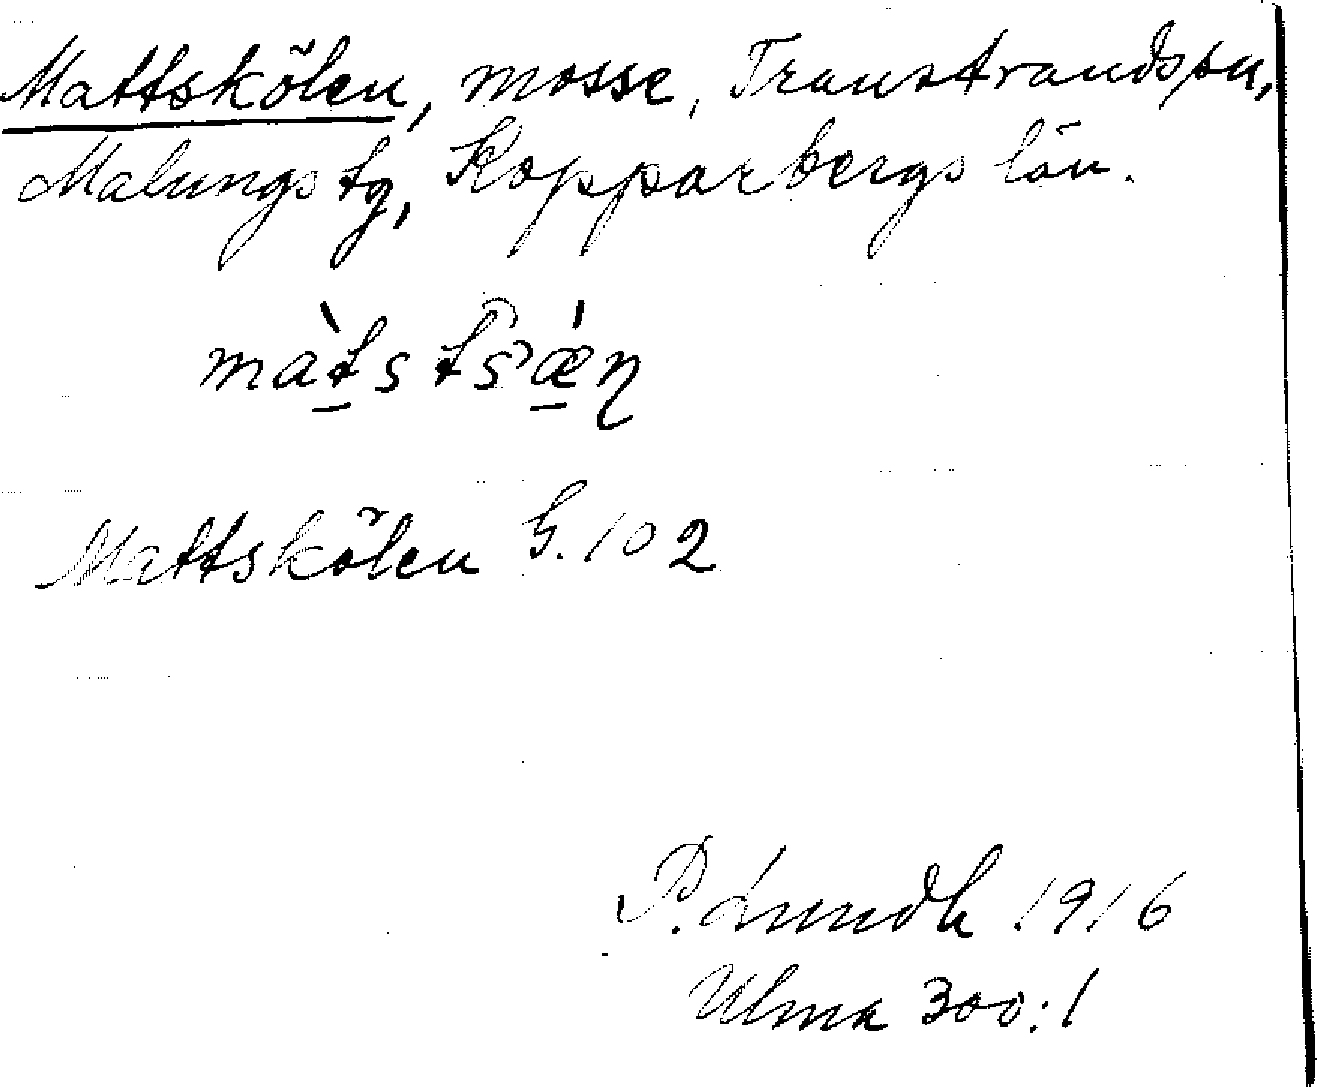 Mattskölen, mosse, Transtrands sn,
Malungs tg, Kopparbergs län.
Mattskölen G. 102
P. Lundh 1916
Ulma 300:1